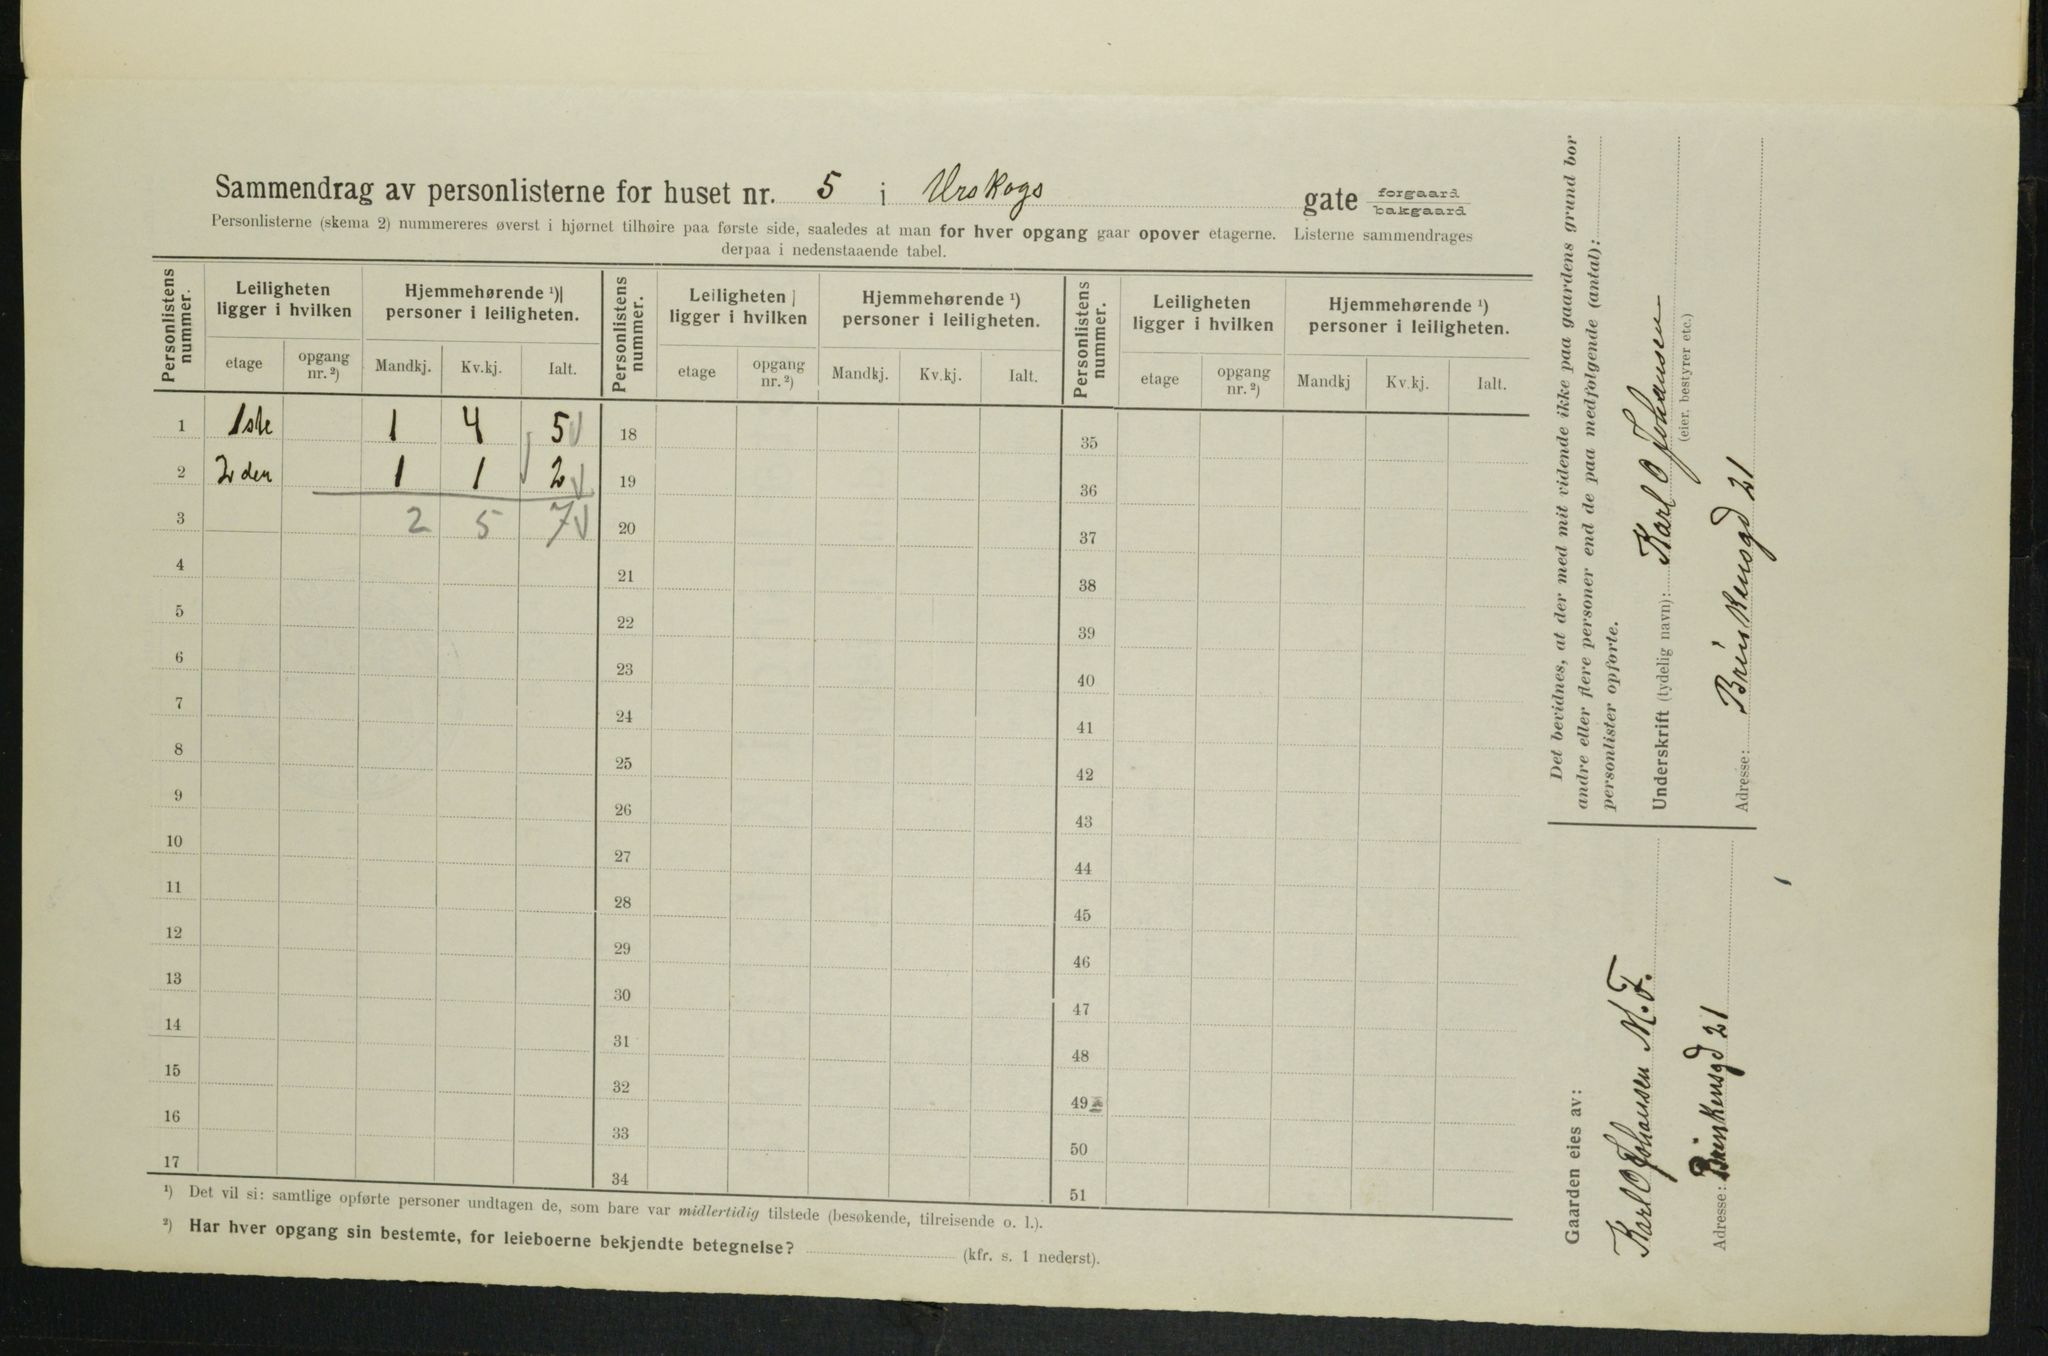 Sammendrag av personlisterne for huset nr. 5 i Urskogs gate forgaard bakgaard
Personlisterne (skema 2) nummereres øverst i hjørnet tilhøire paa første side, saaledes at man for hver opgang gaar opover etagerne. Listerne sammendrages
derpaa i nedenstaaende tabel.
Personlistens nummer. Leiligheten ligger i hvilken Hjemmehørende ¹) personer i leiligheten. Personlistens nummer. Leiligheten ligger i hvilken Hjemmehørende ¹) personer i leiligheten. Personlistens nummer. Leiligheten ligger i hvilken Hjemmehørende ¹) personer i leiligheten.
etage opgang nr. ²) Mandkj. Kv.kj. Ialt. etage opgang nr. ²) Mandkj. Kv.kj. Ialt. etage opgang nr. ²) Mandkj Kv.kj. Ialt.
1 1ste 1 4 5 18 35
2 2den 1 1 2 19 36
3 2 5 7 20 37
4 21 38
5 22 39
6 23 40
7 24 41
8 25 42
9 26 43
10 27 44
11 28 45
12 29 46
13 30 47
14 31 48
15 32 49
16 33 50
17 34 51
¹) Det vil si: samtlige opførte personer undtagen de, som bare var midlertidig tilstede (besøkende, tilreisende o. l.).
²) Har hver opgang sin bestemte, for leieboerne bekjendte betegnelse? (kfr. s. 1 nederst).
Det bevidnes, at der med mit vidende ikke paa gaardens grund bor
andre eller flere personer end de paa medfølgende (antal):
personlister opførte.
Underskrift (tydelig navn): Karl O Johansen
(eier, bestyrer etc.)
Adresse: Brinkensgd 21
Gaarden eies av:
Karl O Johansen M.F.
Adresse: Brinkensgd 21